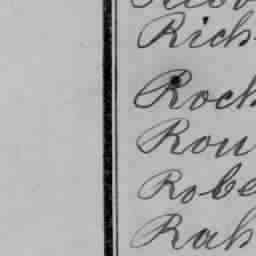 Rich
Rock
Rou
Robe
Rah